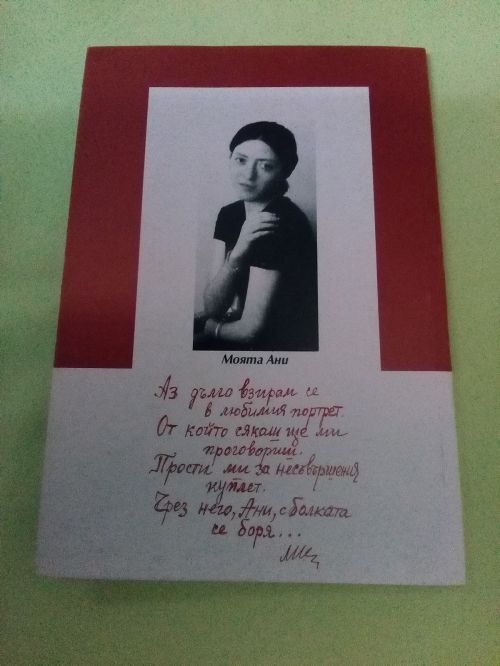 Моята Ани
Аз дълго взирам се
в любимия портрет.
От който сякаш ще ми
проговориш.
Прости ми за несъвършения
куплет.
Чрез него, Ани, с болката
се боря...